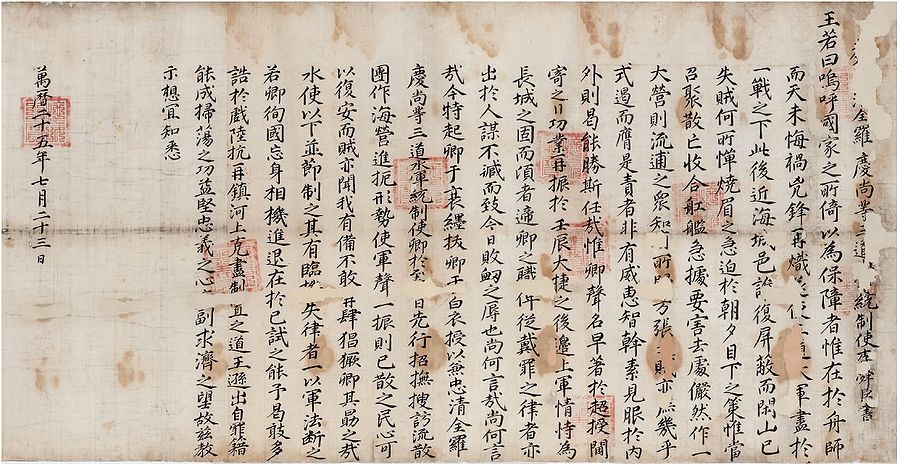 全羅慶尙等三道統制使李舜臣書
王若曰嗚呼國家之所倚以爲保障者惟在於舟師
而天未悔禍兇鋒再熾軍盡於
一戰之下此後近海城邑誰復屛蔽而閑山已
失賊何所憚燒眉之急迫於朝夕目下之策惟當
召聚散亡收合舡艦急據要害去處儼然作一
大營則流逋之衆知所方張賊亦幾乎
式遏而膺是責者非有威惠智幹素見服於內
外則曷能勝斯任哉惟卿聲名早著於超授閫
寄之日功業再振於壬辰大捷之後邊上軍情恃爲
長城之固而頃者遞卿之職俾從戴罪之律者亦
出於人謀不臧而致今日敗衄之辱也尙何言哉尙何言
哉今特起卿于衰絰拔卿于白衣授以兼忠淸全羅
慶尙等三道水軍統制使卿於日先行招撫搜訪流散
團作海營進扼形勢使軍聲一振則已散之民心可
以復安而賊亦聞我有備不敢再肆猖獗卿其勖之哉
水使以下並節制之其有臨失律者一以軍法斷之
若卿徇國忘身相機進退在於已試之能予曷敢多
誥於戲陸抗再鎭河上克盡制置之道王遜出自罪籍
能成掃蕩之功益堅忠義之心副求濟之望故玆敎
示想宜知悉
萬曆二十五年七月二十三日